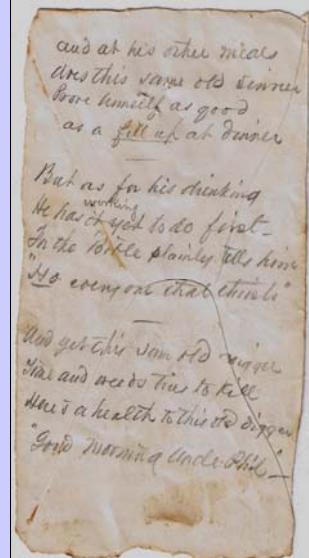 and at his other meals
does this same old sinner
Prove himself as good
as a fill up at dinner
But as for his drinking
working
He has it yet to do first –
For the Bottle plainly tells him
"Ho every one that thirsts"
And yet this sam old nigger
Time and weeds tries to kill
Here's a health to this old digger
"Good morning Uncle Phil" –